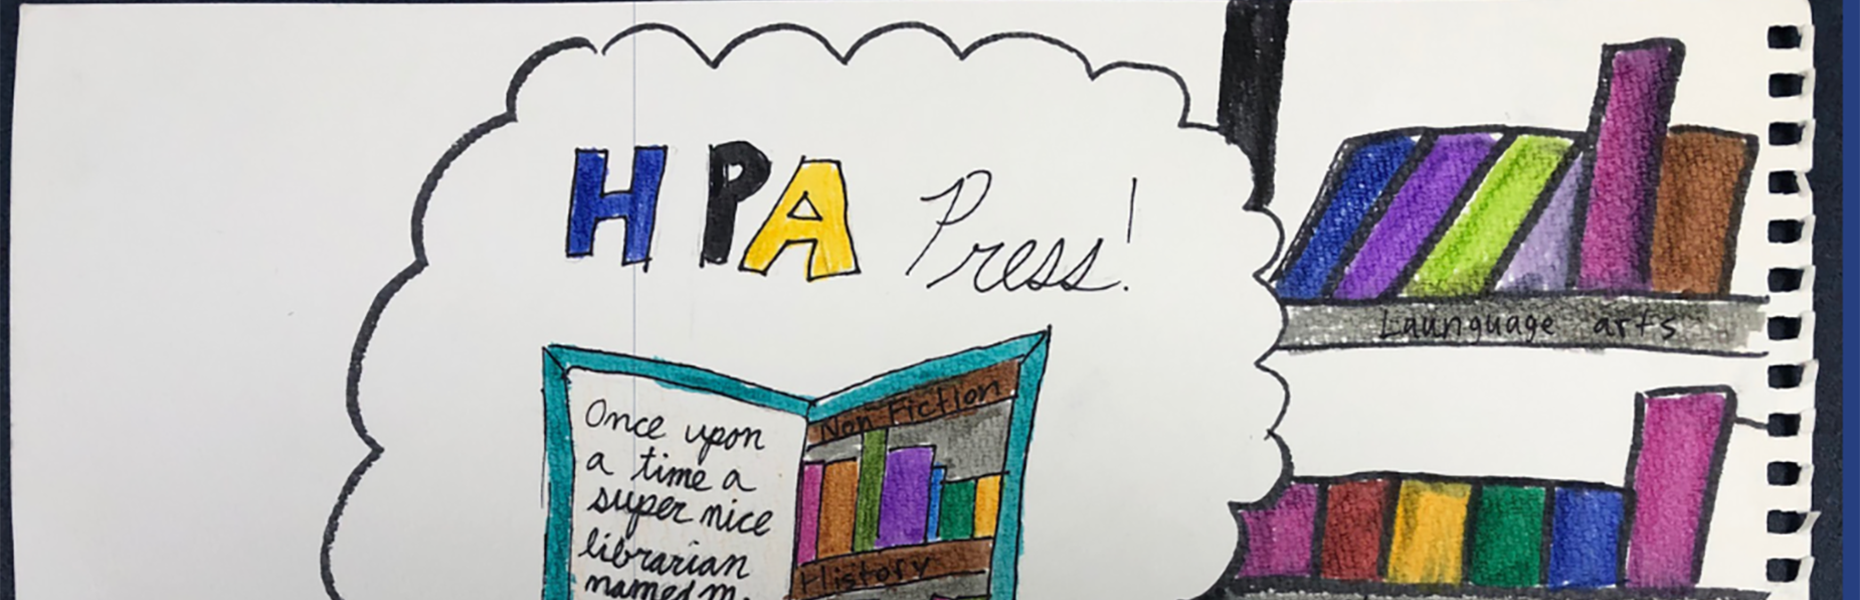 HPA Press!
Launguage arts
Once upon
a time a
super nice
librarian
named M.
Non Fiction
History